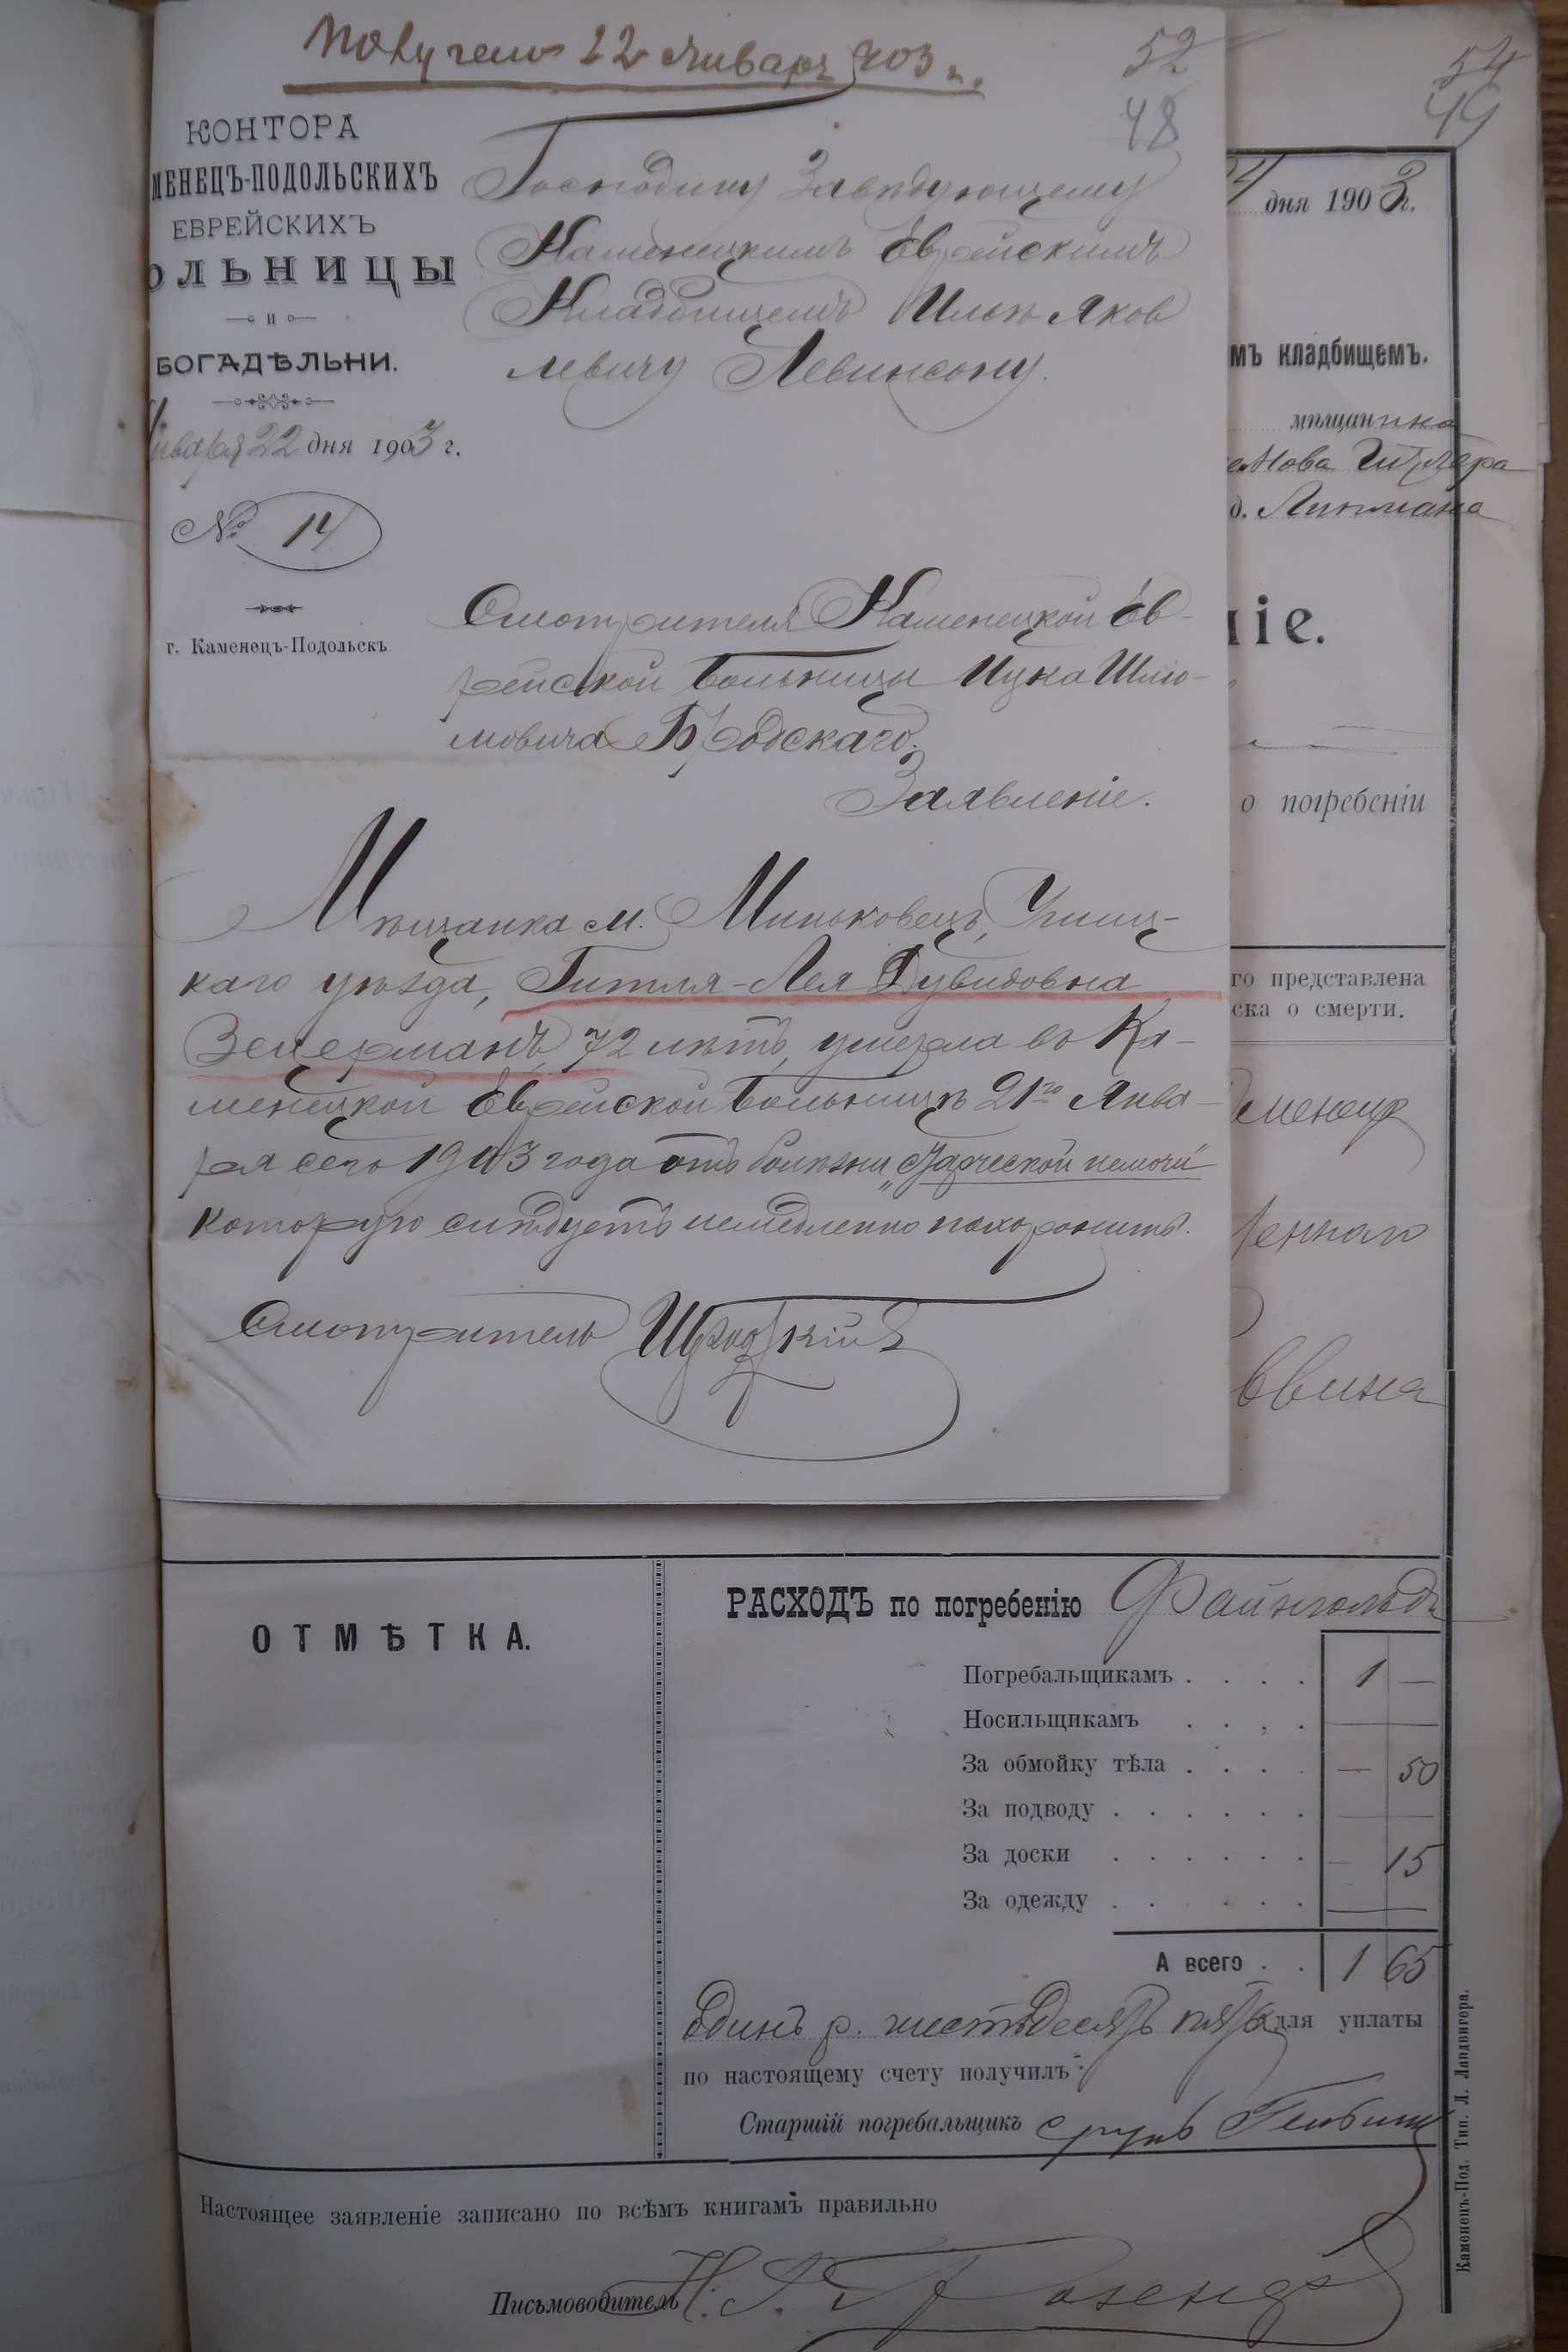 Получено 22 Января 903 г.
52
48
КОНТОРА
МЕНЕЦЪ-ПОДОЛЬСКИХЪ
ЕВРЕЙСКИХЪ
ОЛЬНИЦЫ
и
БОГАДѢЛЬНИ.
Января 22 дня 1903 г.
№ 14
г. Каменецъ-Подольскъ
Господину Завѣдующему
Каменецкимъ Еврейскимъ
Кладбищемъ Ильѣ Яков
левичу Левинсону.
Смотрителя Каменецкой Ев-
рейской Больницы Ицка Шлио-
мовича Бродскаго.
Заявленіе.
Мѣщанка м. Миньковецъ, Ушиц-
каго уѣзда, Гитля-Лея Дувидовна
Зецерманъ, 72 лѣтъ, умерла въ Ка-
менецкой Еврейской Больницѣ 21го Янва-
ря сего 1903 года отъ болѣзни „Старческой немочи"
которую слѣдуетъ немедленно похоронить.
Смотритель
54
49
дня 1903 г.
мъ кладбищемъ.
мѣщанина
д. Липмана
ніе.
о погребеніи
го представлена
ска о смерти.
аменецъ
ввина
ОТМѢТКА.
РАСХОДЪ по погребенію Файнгольдъ
Погребальщикамъ . . . . 1 —
Носильщикамъ . . . . —
За обмойку тѣла . . . . — 50
За подводу . . . . . . —
За доски . . . . . . — 15
За одежду . . . . . . —
А всего . . 1 65
Одинъ р. шестьдесятъ пять для уплаты
по настоящему счету получилъ:
Старшій погребальщикъ
Настоящее заявленіе записано по всѣмъ книгамъ правильно
Письмоводитель
Каменецъ-Под. Тип. Л. Ландвигера.